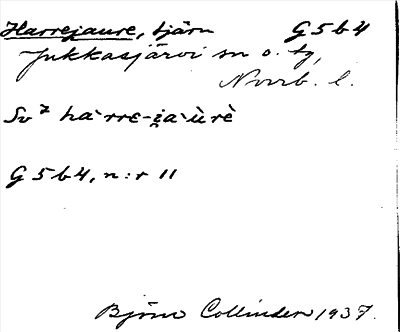 Harrejaure, tjärn G5b4
Jukkasjärvi sn o. tg,
Norrb. l.
Sv⁷ hà·rre-i̯a·ùrè
G5b4, n:r 11
Björn Collinder 1937.